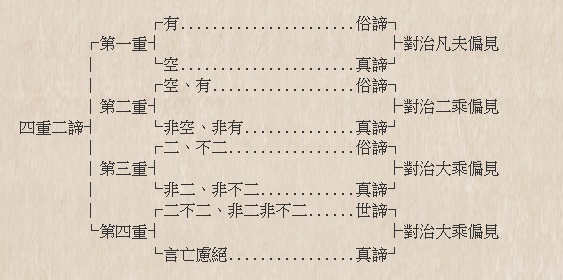 ┌有......................俗諦┐
┌第一重┤ ├對治凡夫偏見
│ └空......................真諦┘
│ ┌空、有..................俗諦┐
│ 第二重┤ ├對治二乘偏見
四重二諦┤ └非空、非有..............真諦┘
│ ┌二、不二................俗諦┐
│ 第三重┤ ├對治大乘偏見
│ └非二、非不二............真諦┘
│ ┌二不二、非二非不二......世諦┐
└第四重┤ ├對治大乘偏見
└言亡慮絕................真諦┘